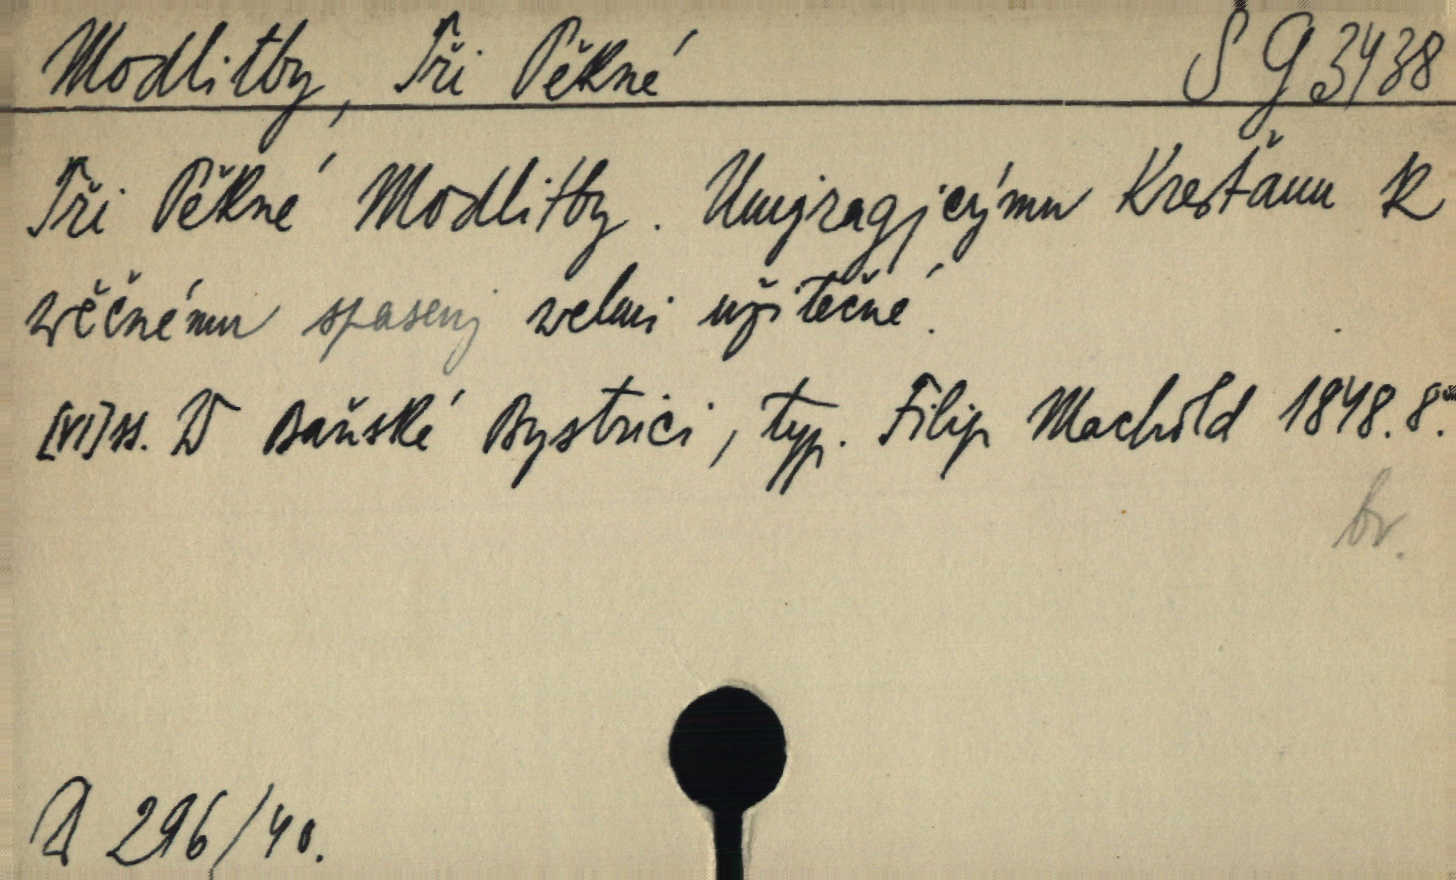 Modlitby, Tři Pěkné SG 3438
Tři Pěkné Modlitby. Umjragjcýmu Kresťanu k
wěčnému spasenj welmi užitečné.
[VI] ss. W Baňské Bystrici, typ. Filip Machold 1848. 8°.
br.
D 296/40.